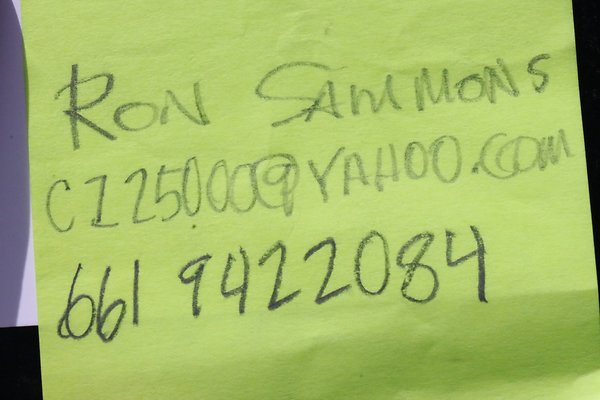 RON SAMMONS
CI25000@YAHOO.COM
661 9422084